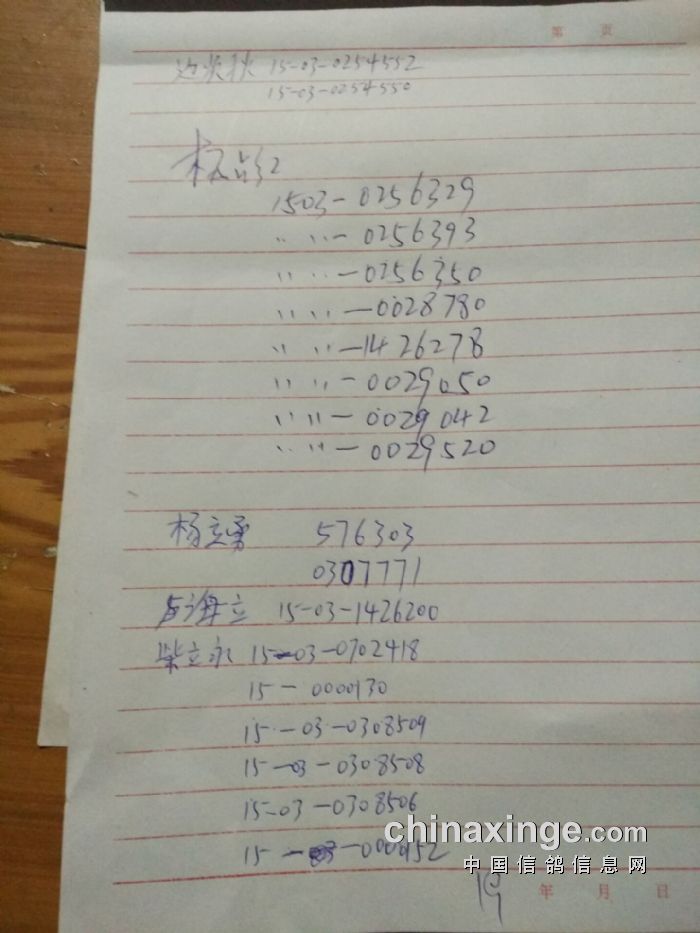 第 页
15-03-0254552
15-03-0254550
1503-0256329
" " -0256393
" " -0256350
" " -0028780
" " -1426278
" " -0029050
" " -0029042
" " -0029520
杨立勇 576303
0307771
海立 15-03-1426200
柴立永 15-03-0702418
15-0000130
15-03-0308509
15-03-0308508
15-03-0308506
15-03-0000152
chinaxinge.com
中国信鸽信息网
19
年 月 日